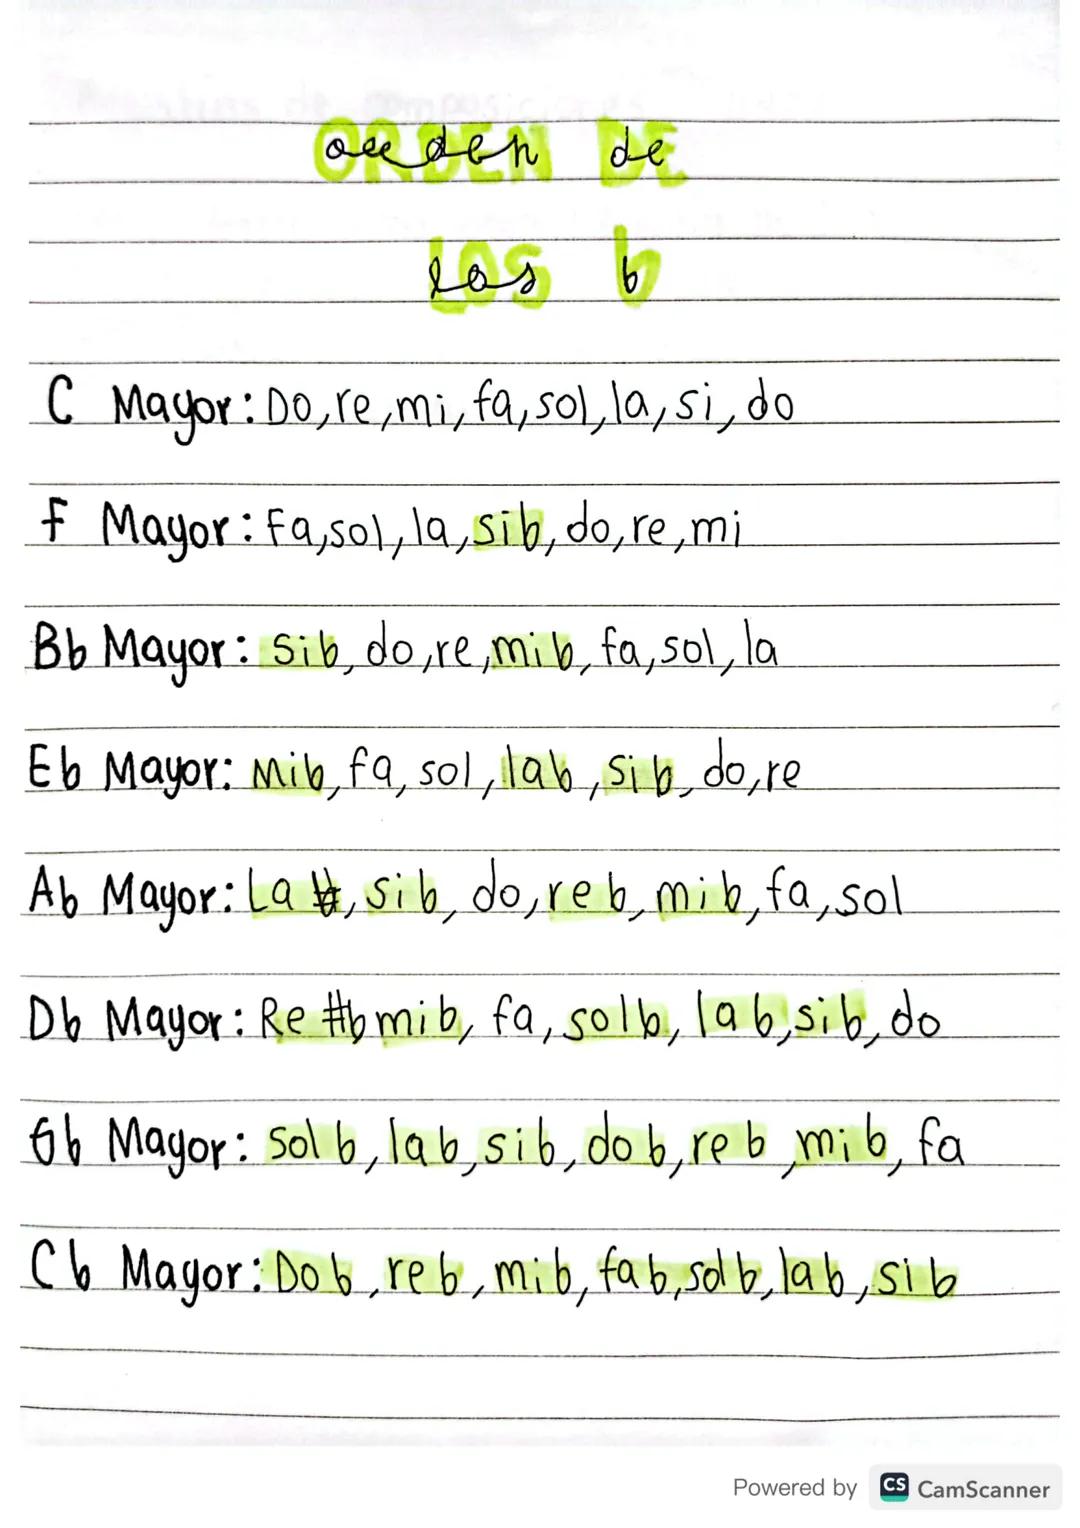 orden de
los b
C Mayor: Do, re, mi, fa, sol, la, si, do
F Mayor: Fa, sol, la, sib, do, re, mi
Bb Mayor: Sib, do, re, mib, fa, sol, la
Eb Mayor: Mib, fa, sol, lab, sib, do, re
Ab Mayor: La b, sib, do, reb, mib, fa, sol
Db Mayor: Re #b mib, fa, solb, lab, sib, do
Gb Mayor: Solb, lab, sib, dob, reb, mib, fa
Cb Mayor: Dob, reb, mib, fab, solb, lab, sib
Powered by CS CamScanner